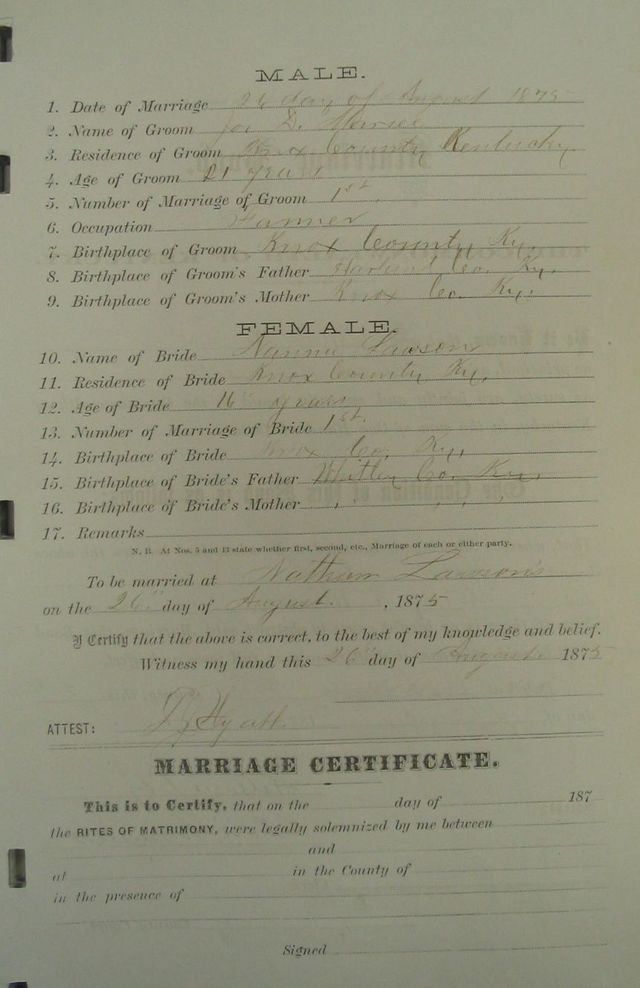 MALE.
1. Date of Marriage 26 day of August 1875
2. Name of Groom D.
3. Residence of Groom Knox County Kentucky
4. Age of Groom 21 years
5. Number of Marriage of Groom 1st.
6. Occupation Farmer
7. Birthplace of Groom Knox County Ky.
8. Birthplace of Groom's Father Harland Co. Ky.
9. Birthplace of Groom's Mother Knox Co. Ky.
FEMALE.
10. Name of Bride Nannie Lawson
11. Residence of Bride Knox County Ky.
12. Age of Bride 16 years
13. Number of Marriage of Bride 1st.
14. Birthplace of Bride Knox Co. Ky.
15. Birthplace of Bride's Father Whitley Co. Ky.
16. Birthplace of Bride's Mother
17. Remarks
N. B. At Nos. 5 and 13 state whether first, second, etc., Marriage of each or either party.
To be married at Lawson's
on the 26th day of August. , 1875
I Certify that the above is correct, to the best of my knowledge and belief.
Witness my hand this 26th day of August. 1875
ATTEST: Hyatt
MARRIAGE CERTIFICATE.
This is to Certify, that on the day of 187
the RITES OF MATRIMONY, were legally solemnized by me between
and
at in the County of
in the presence of
Signed